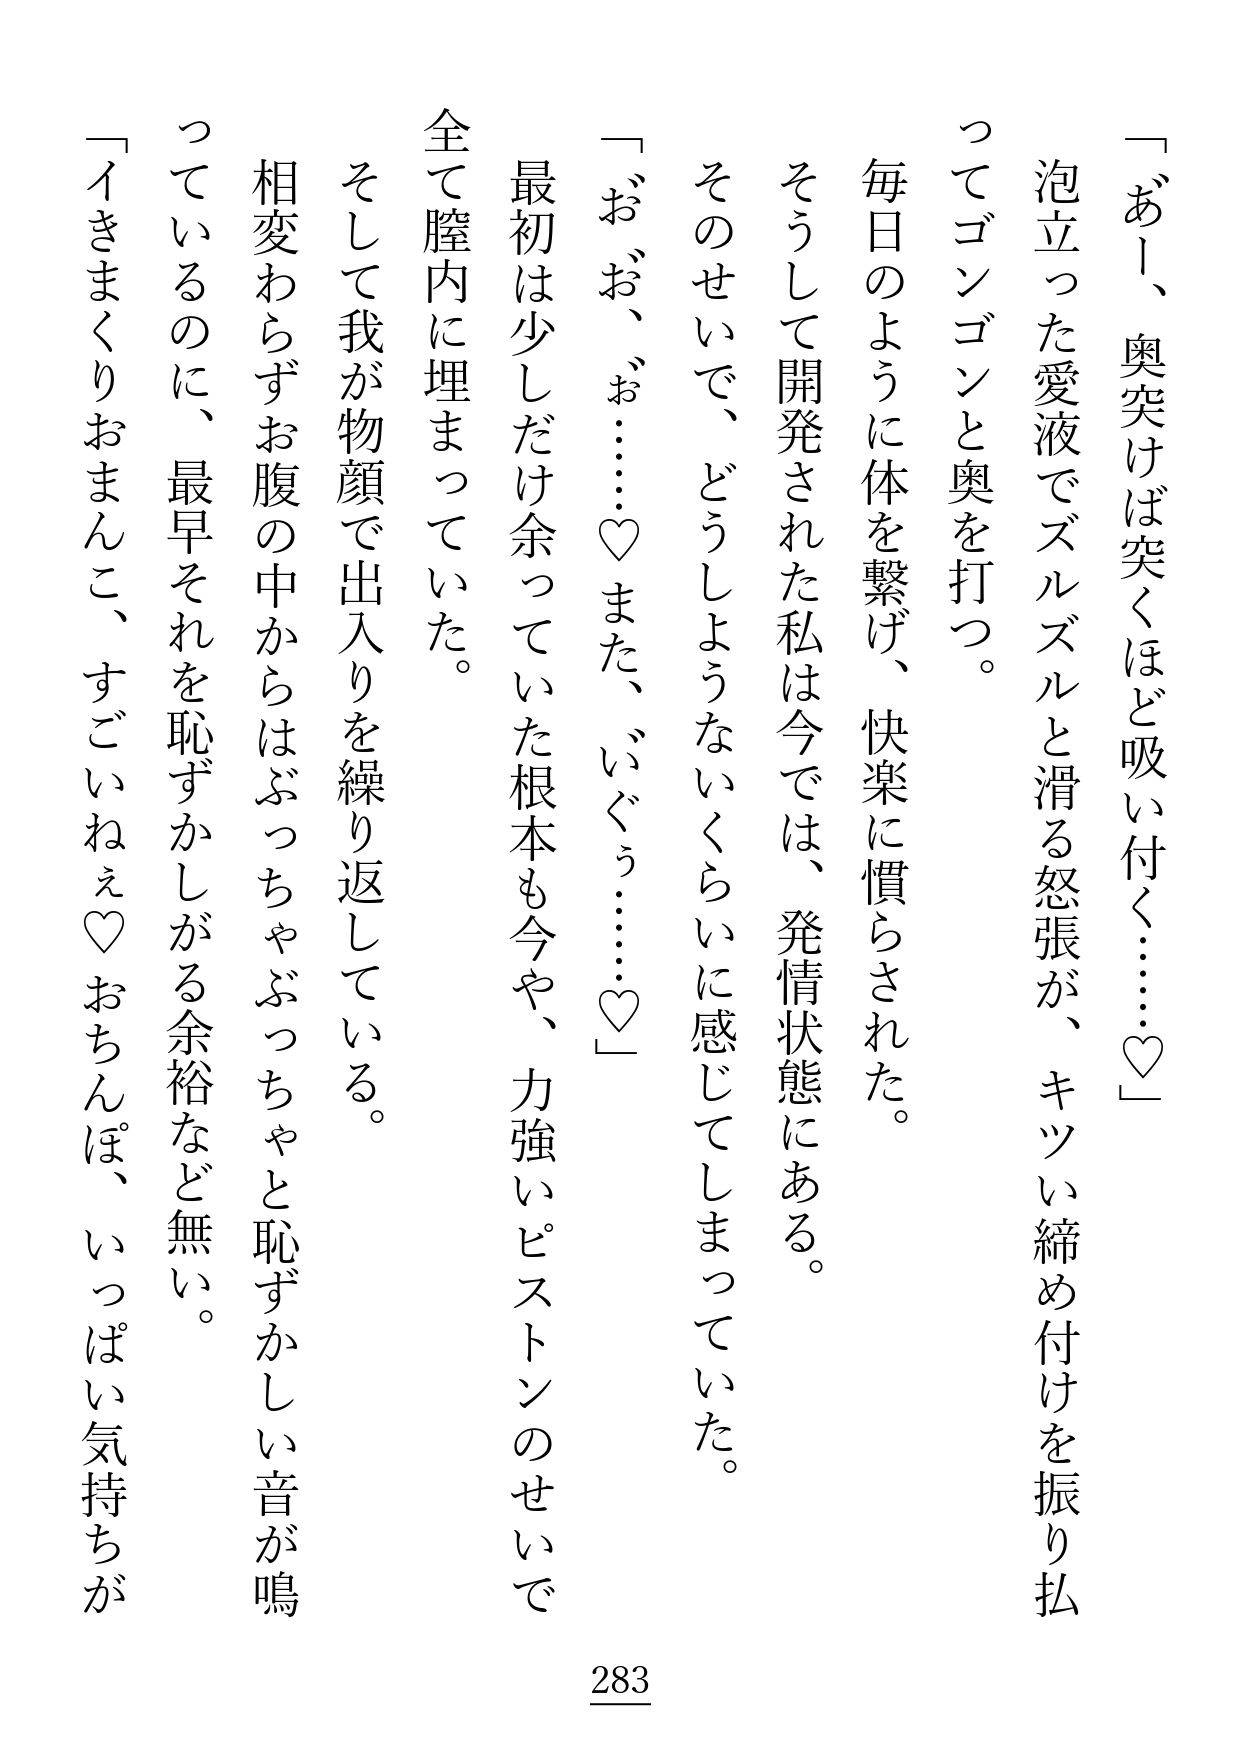 「あ゛ー、奥突けば突くほど吸い付く……♡」
　泡立った愛液でズルズルと滑る怒張が、キツい締め付けを振り払
ってゴンゴンと奥を打つ。
　毎日のように体を繋げ、快楽に慣らされた。
　そうして開発された私は今では、発情状態にある。
　そのせいで、どうしようないくらいに感じてしまっていた。
「お゛お゛、ぉ゛……♡また、い゛ぐぅ……♡」
　最初は少しだけ余っていた根本も今や、力強いピストンのせいで
全て膣内に埋まっていた。
　そして我が物顔で出入りを繰り返している。
　相変わらずお腹の中からはぶっちゃぶっちゃと恥ずかしい音が鳴
っているのに、最早それを恥ずかしがる余裕など無い。
「イきまくりおまんこ、すごいねぇ♡おちんぽ、いっぱい気持ちが
283